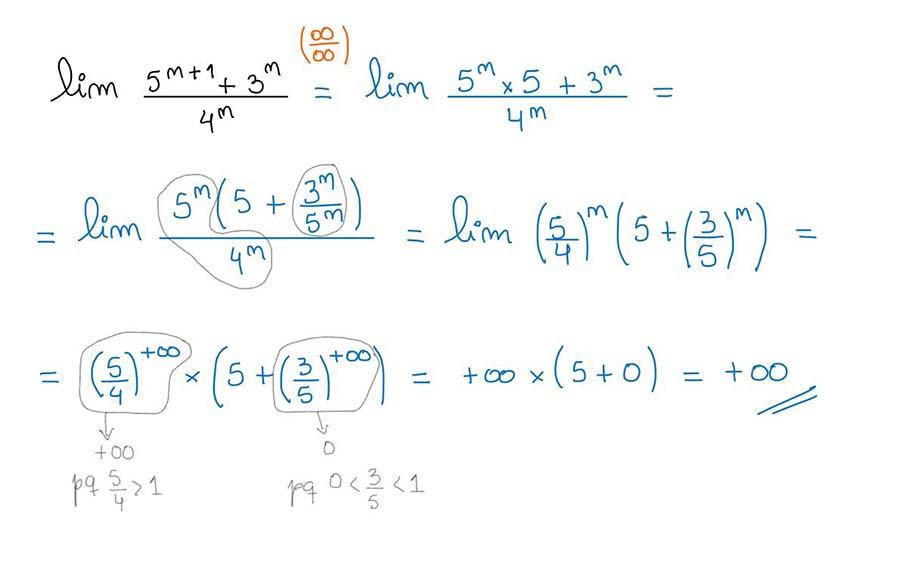 lim (5^(n+1) + 3^n)/(4^n) (∞/∞) = lim (5^n × 5 + 3^n)/(4^n) =
= lim (5^n (5 + 3^n/5^n))/(4^n) = lim (5/4)^n (5 + (3/5)^n) =
= (5/4)^(+∞) × (5 + (3/5)^(+∞)) = +∞ × (5 + 0) = +∞
+∞
0
pq 5/4 > 1
pq 0 < 3/5 < 1